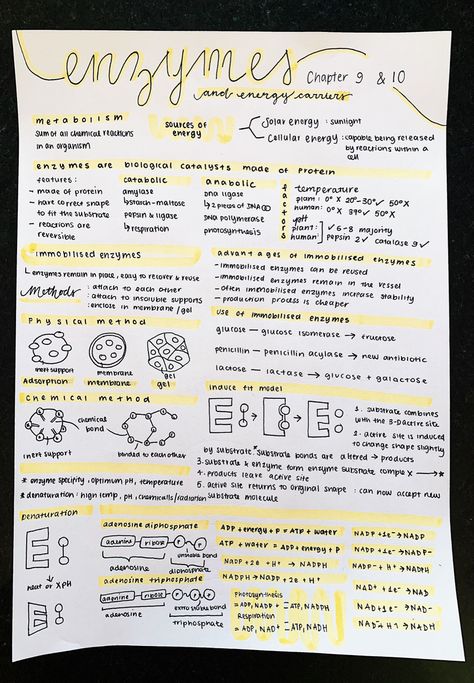 enzymes
and energy carriers
Chapter 9 & 10
metabolism
sum of all chemical reactions
in an organism
sources of
energy
Solar energy : sunlight
Cellular energy : capable being released
by reactions within a
cell
enzymes are biological catalysts made of protein
features:
- made of protein
- have correct shape
to fit the substrate
- reactions are
reversible
catabolic
amylase
↳ starch-maltose
pepsin & ligase
↳ respiration
anabolic
DNA ligase
↳ 2 pieces of DNA
DNA polymerase
photosynthesis
factors
temperature
plant: 0° X 20-30° ✓ 50° X
human: 0° X 37° ✓ 50° X
pH
plant: ✓ 6-8 majority
human: pepsin 2 ✓ catalase 9 ✓
immobilised enzymes
↳ enzymes remain in place, easy to recover & reuse
Methods: attach to each other
: attach to insoluble supports
: enclose in membrane / gel
advantages of immobilised enzymes
- immobilised enzymes can be reused
- immobilised enzymes remain in the vessel
- often immobilised enzymes increase stability
- production process is cheaper
Physical method
inert support
Adsorption
membrane
membrane
gel
gel
use of immobilised enzymes
glucose — glucose isomerase → fructose
penicillin — penicillin acylase → new antibiotic
lactose — lactase → glucose + galactose
chemical method
chemical
bond
inert support
bonded to each other
induce fit model
1. substrate combines
with the 3-D active site
2. active site is induced
to change shape slightly
by substrate * substrate bonds are altered → products
3. substrate & enzyme form enzyme substrate complex
4. products leave active site
5. active site returns to original shape : can now accept new
substrate molecule
* enzyme specifity, optimum pH, temperature
* denaturation: high temp, pH, chemicals/radiation
Denaturation
heat or XPH
adenosine diphosphate
adenine
ribose
P
P
unstable bond
adenosine
diphosphate
adenosine triphosphate
adenine
ribose
P
P
P
extra stable bond
adenosine
triphosphate
ADP + energy + P = ATP + water
ATP + water = ADP + energy + P
NADP + 2e + H⁺ → NADPH
NADPH → NADP + 2e + H⁺
Photosynthesis
= ADP, NADP + = ATP, NADPH
Respiration
= ADP, NAD⁺ = ATP, NADH
NADP + 1e⁻ → NADP
NADP + 1e → NADP-
NADP- + H⁺ → NADPH
NAD⁺ + 1e⁻ → NAD
NAD + 1e → NAD-
NAD- + H → NADH